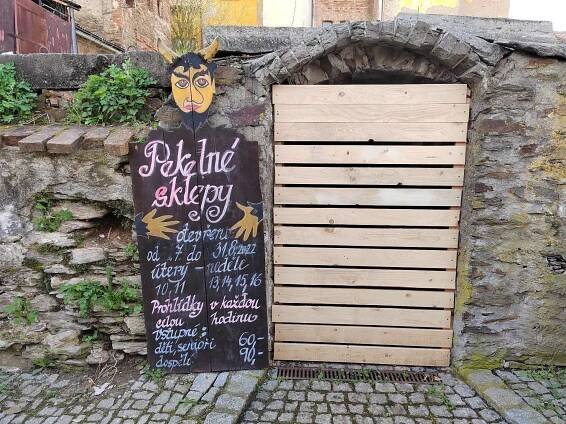 Pekelné
sklepy
otevřeno
od 1.7. do 31.8.2022
úterý - neděle
10, 11 13, 14, 15, 16
Prohlídky v každou
celou hodinu
vstupné:
děti, senioři 60,-
dospělí 90,-